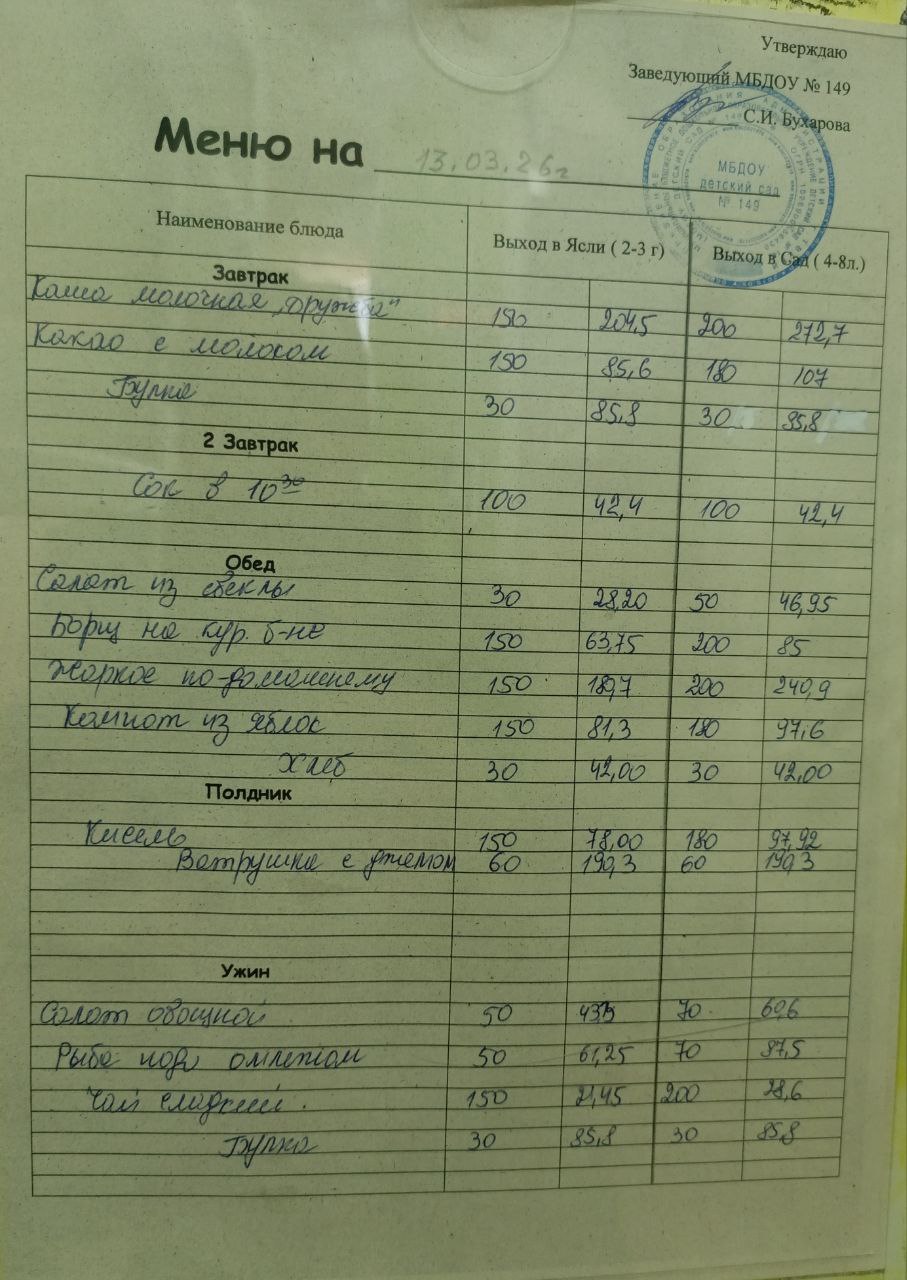 Утверждаю
Заведующий МБДОУ № 149
С.И. Бухарова
МБДОУ
детский сад
№ 149
Меню на 13.03.26г
Наименование блюда Выход в Ясли ( 2-3 г) Выход в Сад ( 4-8л.)
Завтрак
Каша молочная "Дружба" 150 204,5 200 272,7
Какао с молоком 150 85,6 180 107
Булка 30 85,8 30 85,8
2 Завтрак
Сок в 10 30 100 42,4 100 42,4
Обед
Салат из свеклы 30 28,20 50 46,95
Борщ на кур. б-не 150 63,75 200 85
Жаркое по-домашнему 150 200 240,9
Компот из яблок 150 81,3 180 97,6
Хлеб 30 42,00 30 42,00
Полдник
Кисель 150 78,00 180 97,92
Ватрушка с джемом 60 190,3 60 190,3
Ужин
Салат овощной 50 70
Рыба под омлетом 50 61,25 70 87,5
Чай сладкий. 150 21,45 200 28,6
Булка 30 85,8 30 85,8